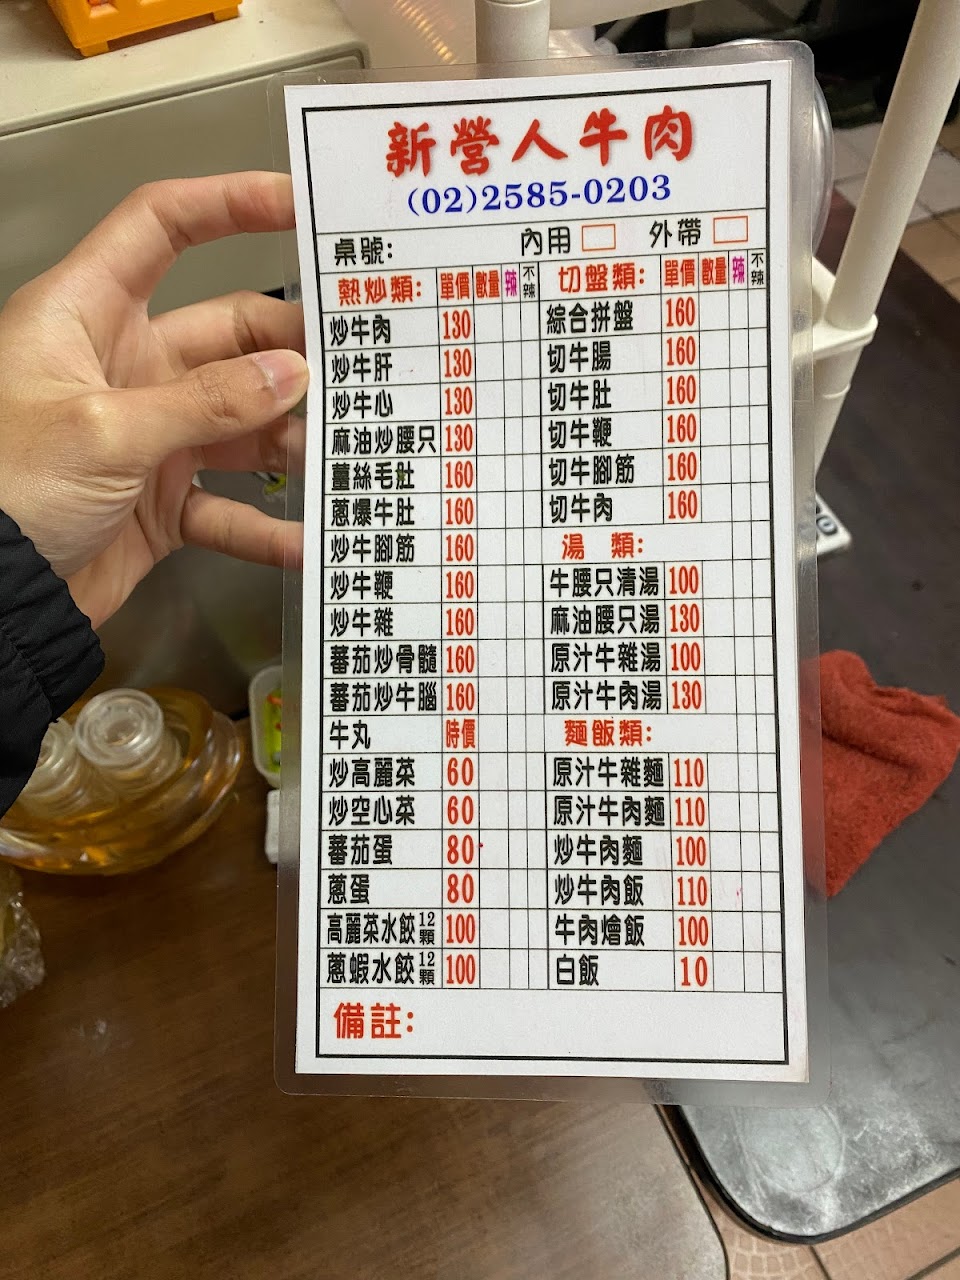 新營人牛肉
(02)2585-0203
桌號: 內用 外帶
熱炒類: 單價 數量 辣 不辣
炒牛肉 130
炒牛肝 130
炒牛心 130
麻油炒腰只 130
薑絲毛肚 160
蔥爆牛肚 160
炒牛腳筋 160
炒牛鞭 160
炒牛雜 160
蕃茄炒骨髓 160
蕃茄炒牛腦 160
牛丸 時價
炒高麗菜 60
炒空心菜 60
蕃茄蛋 80
蔥蛋 80
高麗菜水餃12顆 100
蔥蝦水餃12顆 100
切盤類: 單價 數量 辣 不辣
綜合拼盤 160
切牛腸 160
切牛肚 160
切牛鞭 160
切牛腳筋 160
切牛肉 160
湯 類:
牛腰只清湯 100
麻油腰只湯 130
原汁牛雜湯 100
原汁牛肉湯 130
麵飯類:
原汁牛雜麵 110
原汁牛肉麵 110
炒牛肉麵 100
炒牛肉飯 110
牛肉燴飯 100
白飯 10
備註: